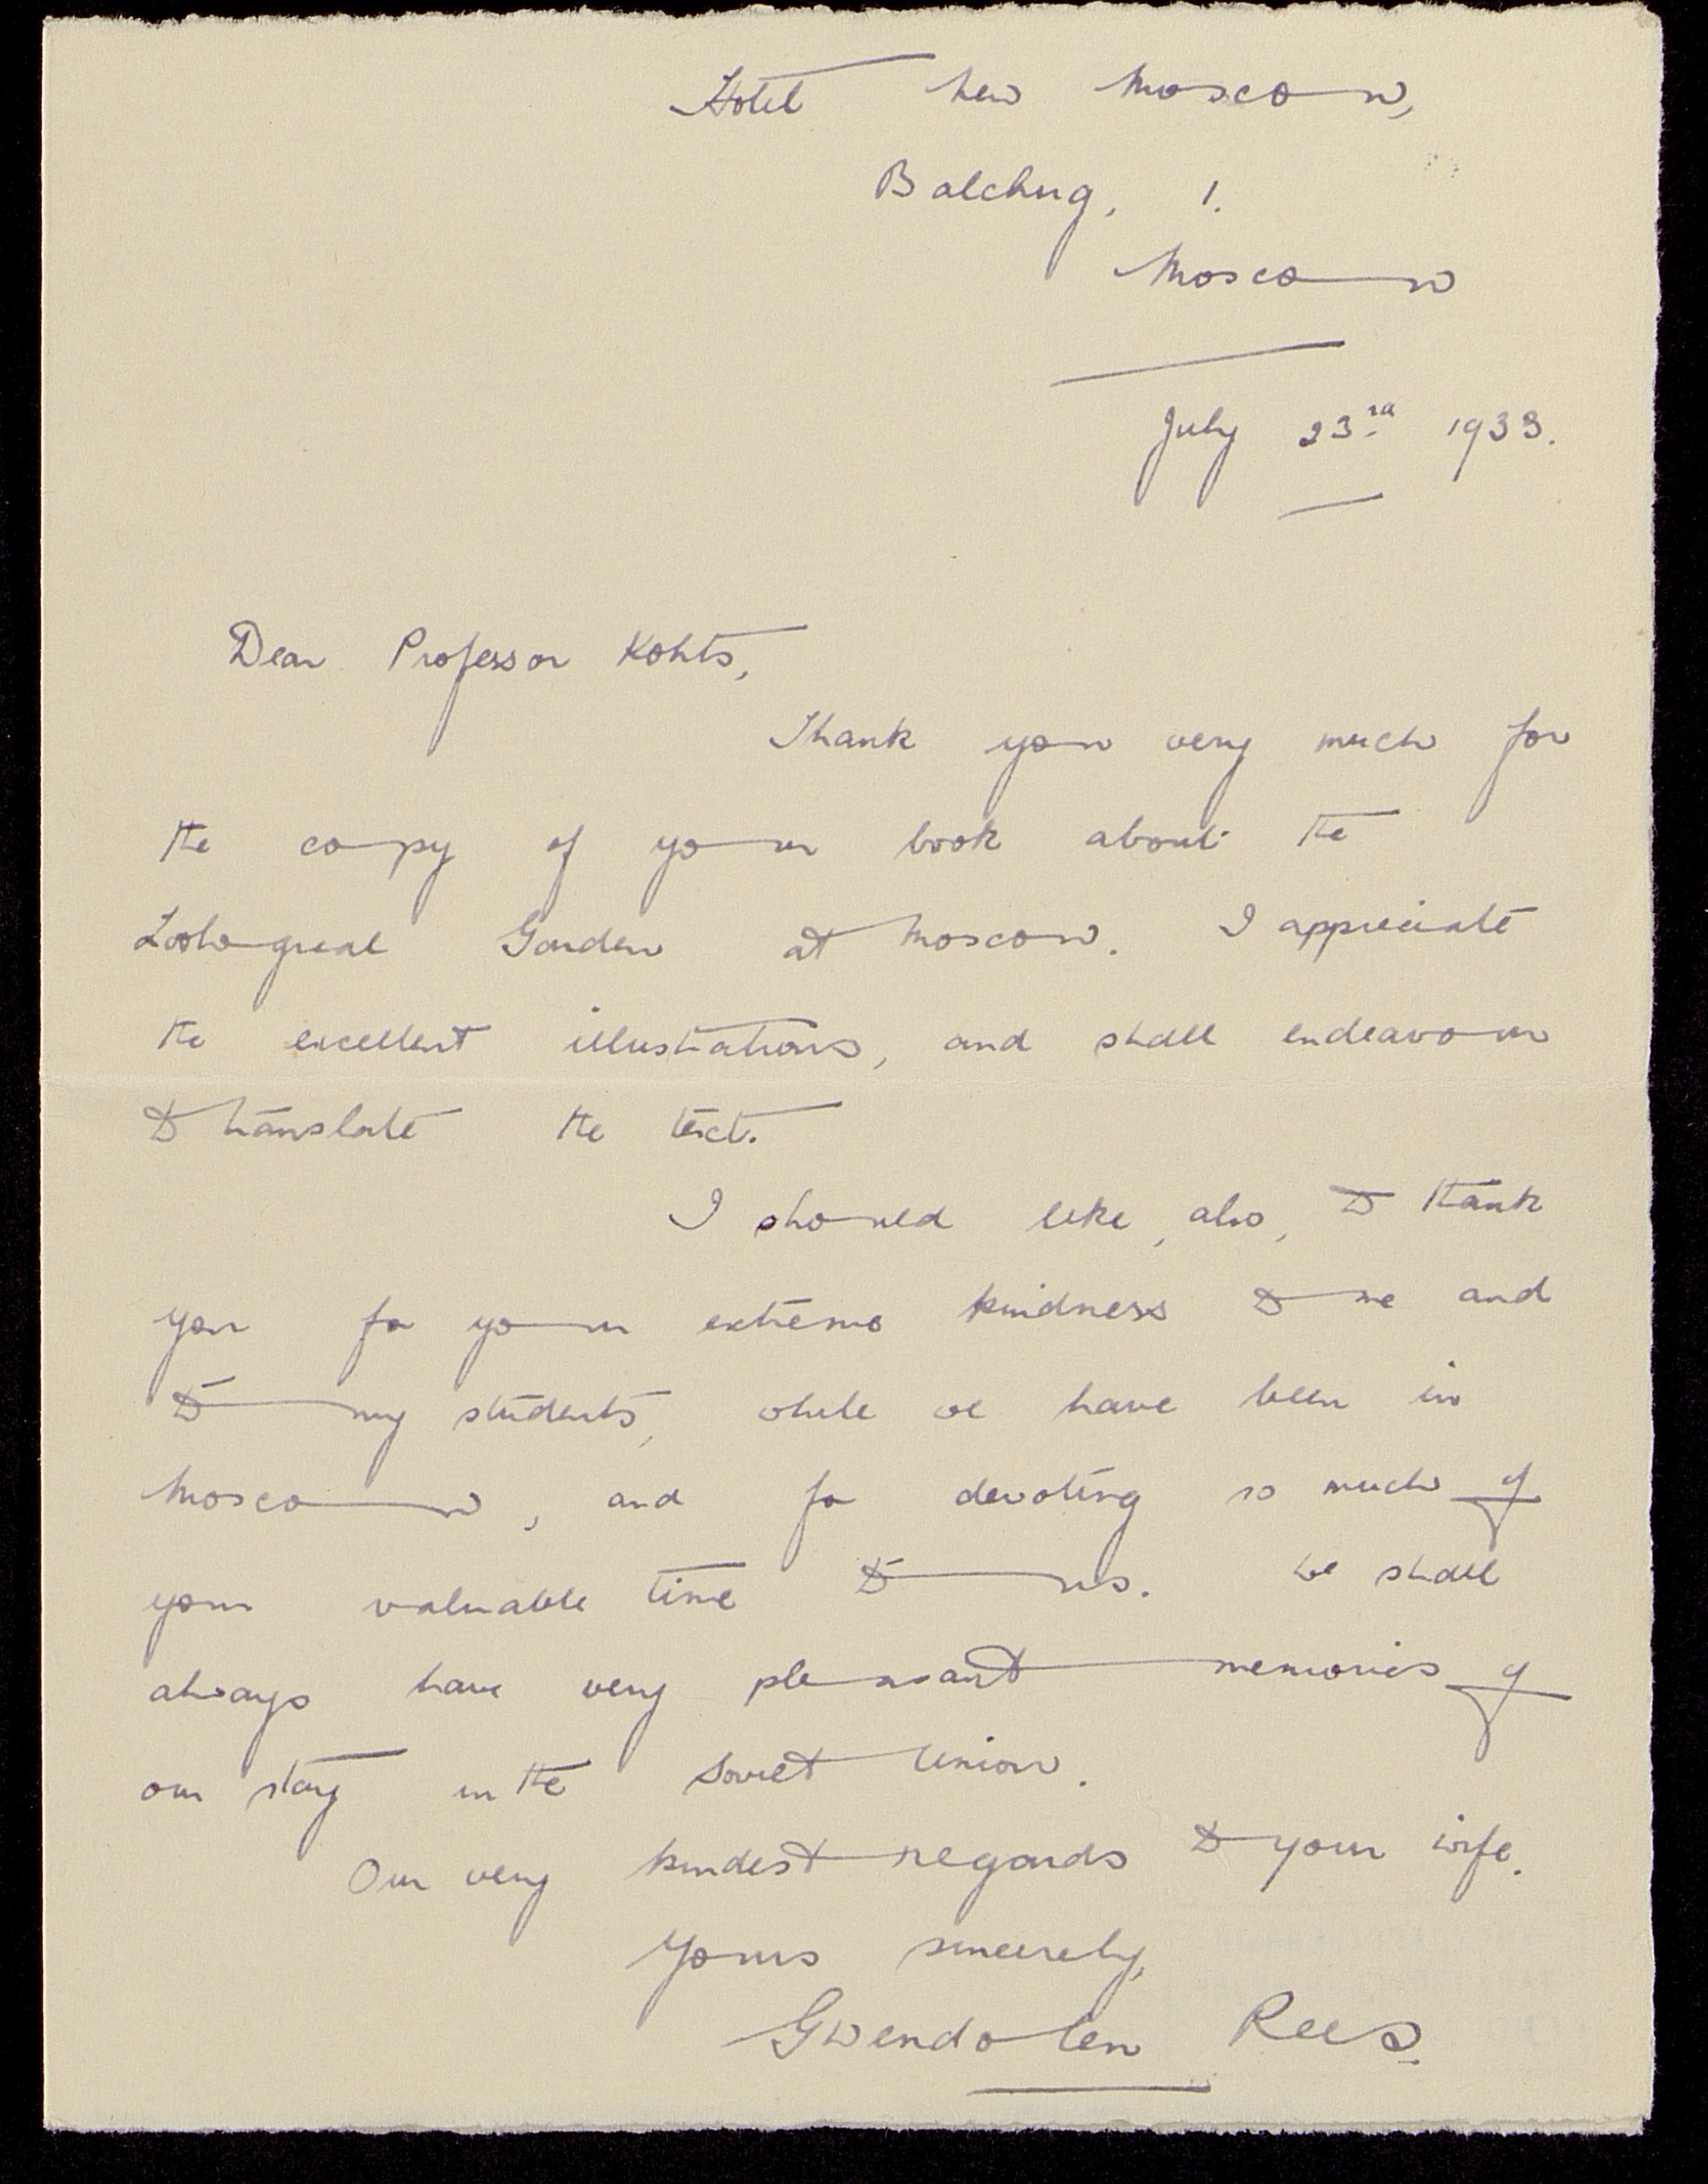 Hotel New Moscow,
Balchug, 1.
Moscow
July 23rd 1933.
Dear Professor Kohts,
Thank you very much for
the copy of your book about the
Zoological Garden at Moscow. I appreciate
the excellent illustrations, and shall endeavour
to translate the text.
I should like, also, to thank
you for your extreme kindness to me and
to my students, while we have been in
Moscow, and for devoting so much of
your valuable time to us. We shall
always have very pleasant memories of
our stay in the Soviet Union.
Our very kindest regards to your wife.
Yours sincerely,
Gwendolen Rees.